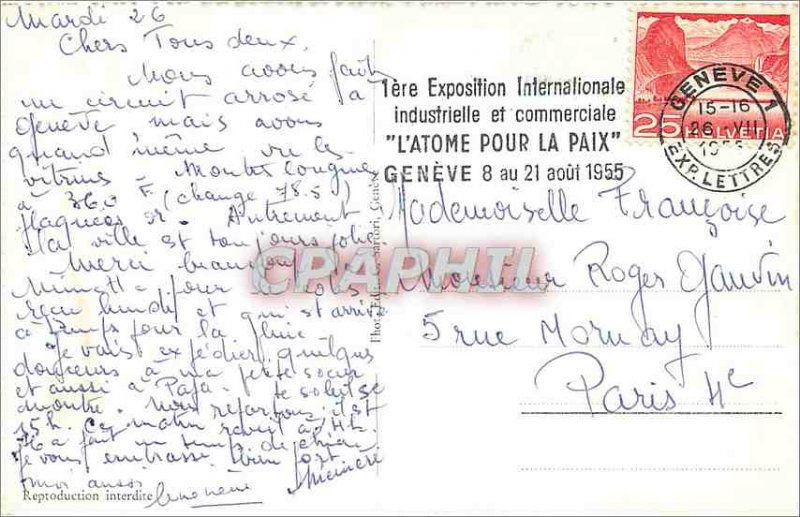 Mardi 26
Chers Tous deux,
Nous avons fait
un circuit arrosé à
Genève mais avons
quand même vu les
vitrines - Montres Longines
à 360 F (change 78.5)
plaquées or. Autrement
la ville est toujours jolie
Merci beaucoup
pour
reçu lundi et qui est arrivé
à temps pour la pluie
Je vais expédier quelques
douceurs à ma petite soeur
et aussi à Papa. Le soleil se
montre. Nous repartons, il est
15h. Ce matin réveil à 4h.
a fait un temps de chien
Je vous embrasse bien fort
moi aussi
Reproduction interdite
Sartori, Genève
1ère Exposition Internationale
industrielle et commerciale
"L'ATOME POUR LA PAIX"
GENÈVE 8 au 21 août 1955
GENÈVE 1
15-16
26 VII
EXP. LETTRES
25 HELVETIA
Mademoiselle Françoise
Monsieur Roger Gauvin
5 rue Mornay
Paris 4e
CPAPHIL